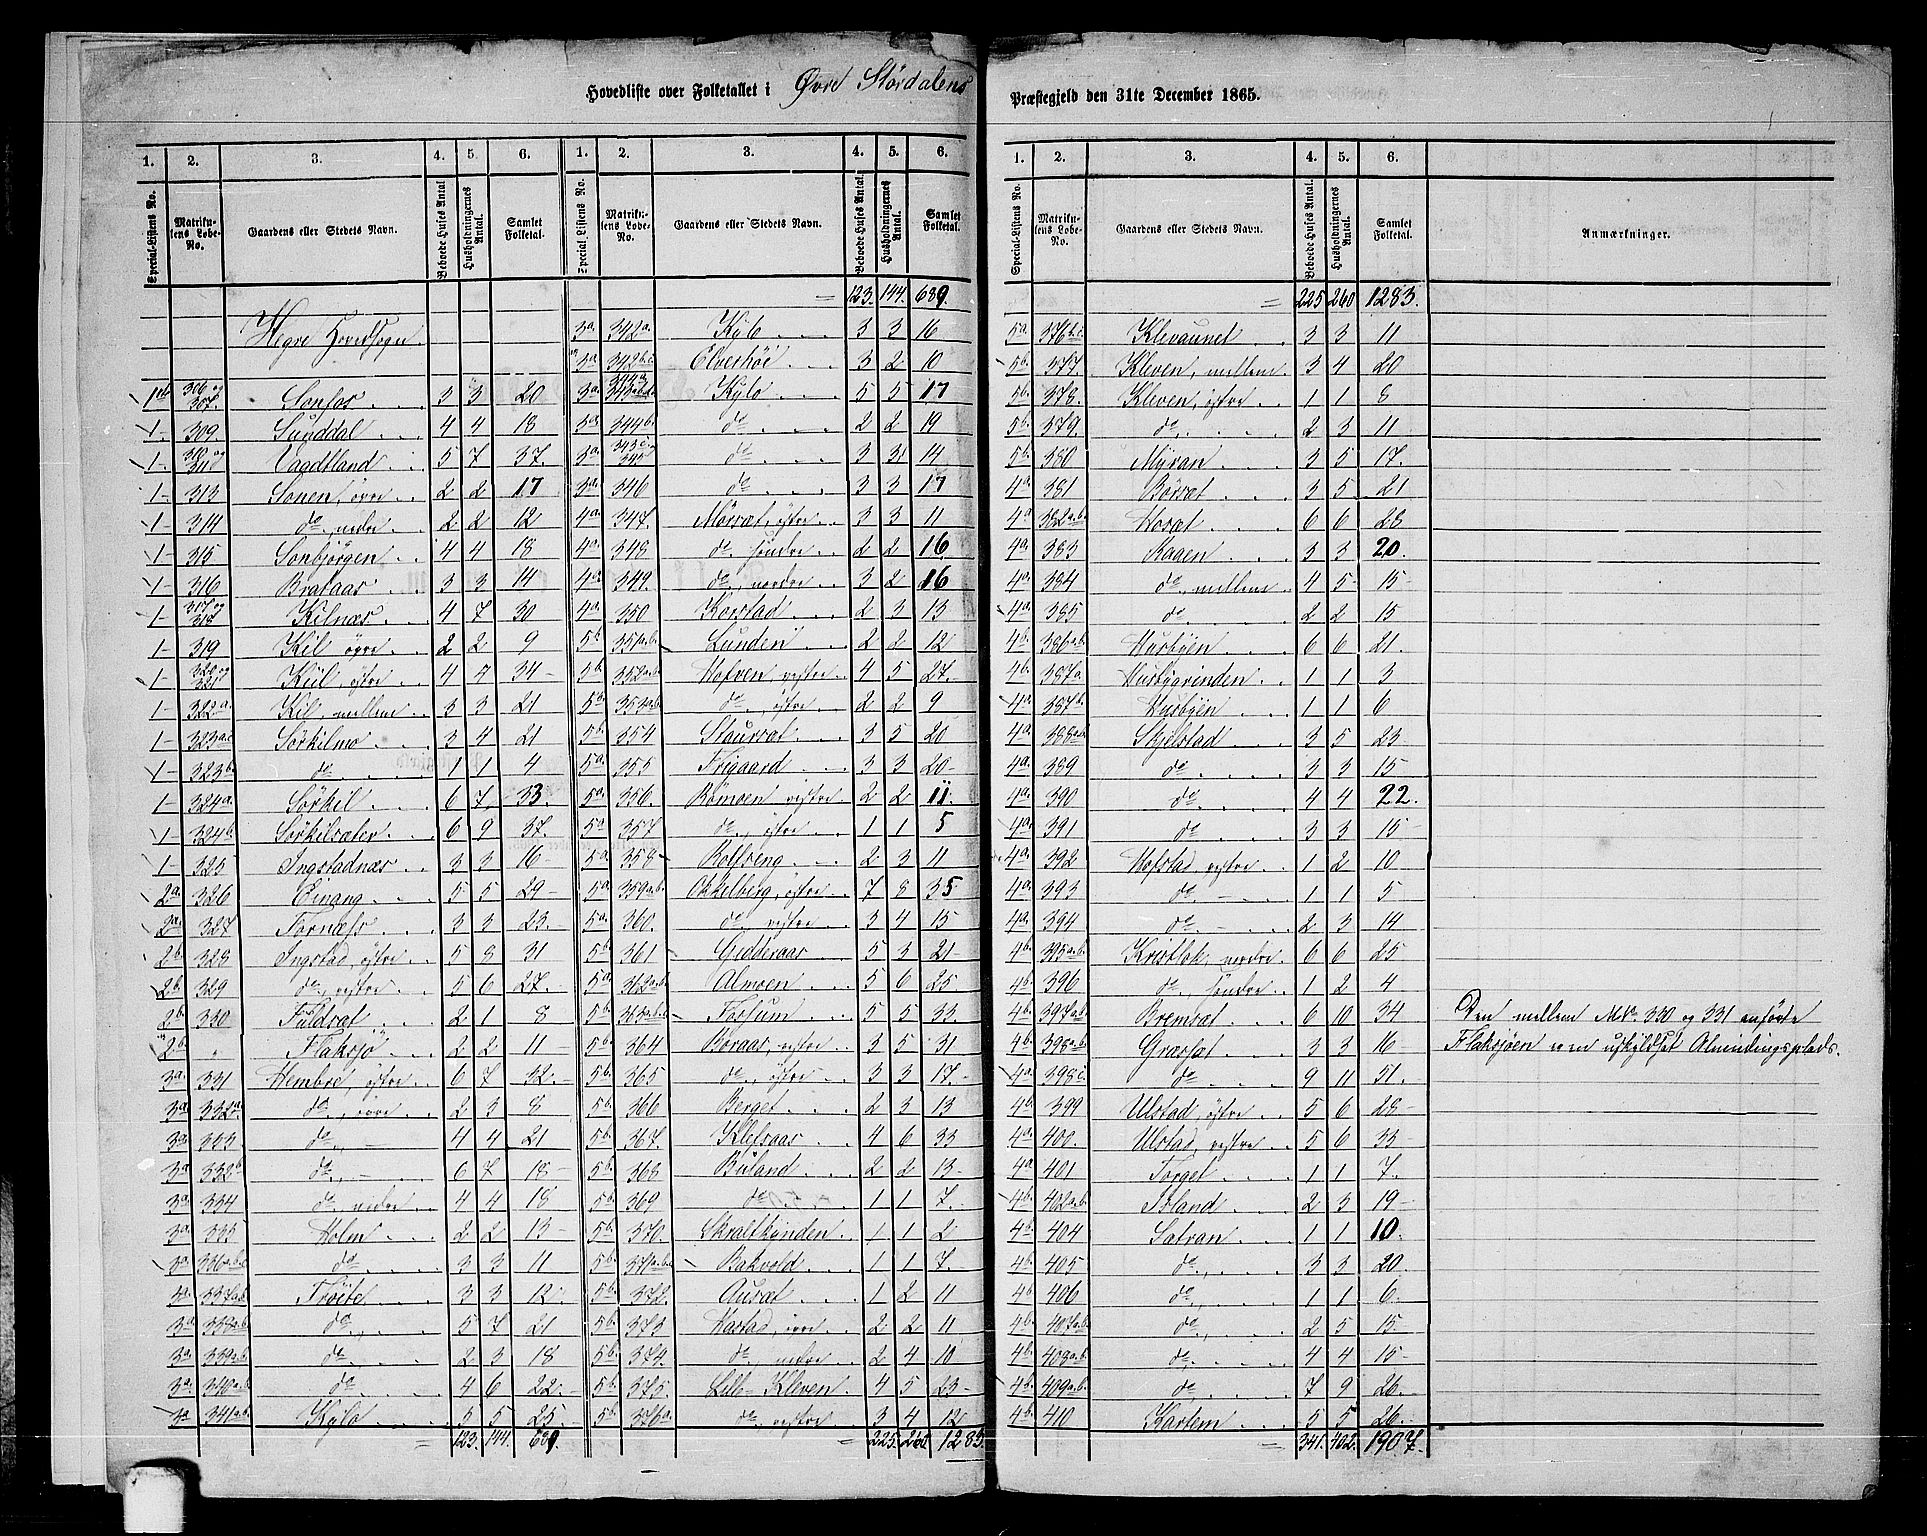 Hovedliste over Folketallet i Øvre Størdalens
Præstegjeld den 31te December 1865.
1. 2. 3. 4. 5. 6. 1. 2. 3. 4. 5. 6.
Special-Listens No. Matrikulens Løbe-No. Gaardens eller Stedets Navn. Beboede Huses Antal Husholdningernes Antal. Samlet Folketal. Special-Listens No. Matrikulens Løbe-No. Gaardens eller Stedets Navn. Beboede Huses Antal. Husholdningernes Antal. Samlet Folketal.
= 123. 144. 689.
Hegre Hovedsogn 3a 342a. Kylo 3 3 16
3a 342b.c. Elverhöi 3 2 10
306 og 307. Sonfos 3 3 20 3a Kylo 5 5 17
1. 309. Sunddal 4 4 18 3a 344b. do 2 2 19
1. 310 og 311 Vaadtland 5 7 37. 3a do 3 3 14
1- 313 Sonen, övre 2 2 17 3a 346 do 3 3 17
1- 314 do nedre 2 2 12 4a 347. Mörsæt, östre 3 3 11
1- 315 Sonbjörgen 4 4 18 4a 348 do, söndre 2 2 16
1- 316 Brataas 3 3 14 4a 349. do, nordre 3 2 16
1- 317 og 318 Kilnæs 4 7 30 4a 350 Korstad 2 3 13
1- 319 Kil övre 2 2 9 5b 351a.b. Lunden 2 2 12
1- 320 og 321 Kiil, östre 4 7 34 5b 352a.b. Hofven, vestre 4 5 27.
1- 322a. Kil, mellem 3 3 21 5b 353a.b. do, östre 2 2 9
1- 323a.c Sörkilmo 3 4 21 5b 354 Staursæt 3 5 20
1- 323b. do 1 1 4 5a 355 Frigaard 3 3 20
1- 324a. Sörkil 6 7 33. 5a 356. Römoen vestre 2 2 11.
1 324b. Sörkilsæter 6 9 37. 5a 357. do, östre 1 1 5
1- 325 Ingstadnæs 3 3 16 5a 358 Bollseng 2 3 11
2a. 326 Einang 5 5 29 5a 359a.b. Okkelberg, östre 7 8 35
2a. 327 Fornæss 3 3 23. 5a 360. do vestre 3 4 15
2b. 328 Ingstad östre 5 8 31 5b 361 Gidderaas 5 3 21
2b. 329 do, vestre 5 6 27. 5a 362a.b. Almoen 5 6 25
2b. 330 Fuldsæt 2 1 8 5b 363a.b.c. Forsum 5 5 33
2b. " Flaksjö 2 2 11 5b 364 Boraas, vestre 3 5 31
3a. 331 Hembre, östre 6 7 32. 5b 365 do, östre 3 3 17
3a 332a. do, övre 2 3 8 5b 366 Berget 2 3 13
3a 333. do 4 4 21 5b 367. Klefsaas 4 6 33
3a 332b do 6 7 18 5b 368 Buland 2 2 13
3a 334 do, nedre 4 4 18 5b 369 do 1 1 7.
3a. 335 Holm 2 2 13 5b. 370. Skraltbunden 1 1 2
3a 336a.b.c do 3 3 11 5b. 371a.b.c Bakvold 1 1 7.
3a. 337a.b. Tröite 3 3 12. 5b. 372. Ausæt 1 2 11
3a 338a.b. do 5 7 21 5b. 373 Hastad, övre 2 2 11
3a 339a.b. do 2 3 18 5b. 374. do, nedre 2 4 10
3a. 340a.b. do 4 6 22. 5b. 375. Lille Kleven 4 5 23
3a 341a.b. Kylo 5 5 25. 5b. 376a. do, vestre 3 4 12
= 123. 144. 689. = 225. 260 1283.
1. 2. 3. 4. 5. 6.
Special-Listens No. Matrikulens Løbe-No. Gaardens eller Stedets Navn. Beboede Huses Antal. Husholdningernes Antal. Samlet Folketal. Anmærkninger.
= 225 260 1283.
5a 376b.c. Klevaunet 3 3 11
5b. 377 Kleven, mellem 3 4 20
5b 378. Kleven, östre 1 1 8
5b. 379. do 2 3 11
5b. 380 Myran 3 5 17.
4a 381 Börsæt 3 5 21
4a 382a.b. Hosæt 6 6 28
4a. 383 Raaen 3 3 20.
4a 384 do mellem 4 5 15
4a. 385 do 2 2 15
4b. 386a.b. Husbyen 6 6 21
4b. 387a. Husbyvinden 1 1 3
4a. 387b. Husbyen 1 1 6
4a. Skjelstad 3 5 23
4a. 389 do 3 3 15
4a. 390 do 4 4 22
4a. 391 do 3 3 15
4a. 392 Hofstad, vestre 1 2 10
4a. 393 do 1 1 5
4a. 394 do 2 3 14
4b. 395a.b. Kristlok, nordre 6 6 25
4b. 396 do, söndre 1 2 4
4b. 397a.b. Bremsæt 6 10 34
4b. 398a.b. Græsfæt 3 3 16
4a. 398c. do 9 11 51.
4b. 399 Ulstad, östre 5 6 28
4a. 400. Ulstad, vestre 5 6 33
4a. 401 Torget 1 1 7.
4b. 402a.b. Aoland 2 3 19
4b. 404 Satran 1 1 10
4b. 405 do 3 3 20
4b. 406 do 1 1 6
4b. 407a.b. do 2 5 15
4b. 408a.b. do 4 4 15
4b. 409a.b. do 7 9 26
4b. 410 Kartem 5 5 26
= 341. 402. 1907.
Den mellem M.No 330 og 331 anförte
Flaksjöen er en uskyldsat Almindingsplads.